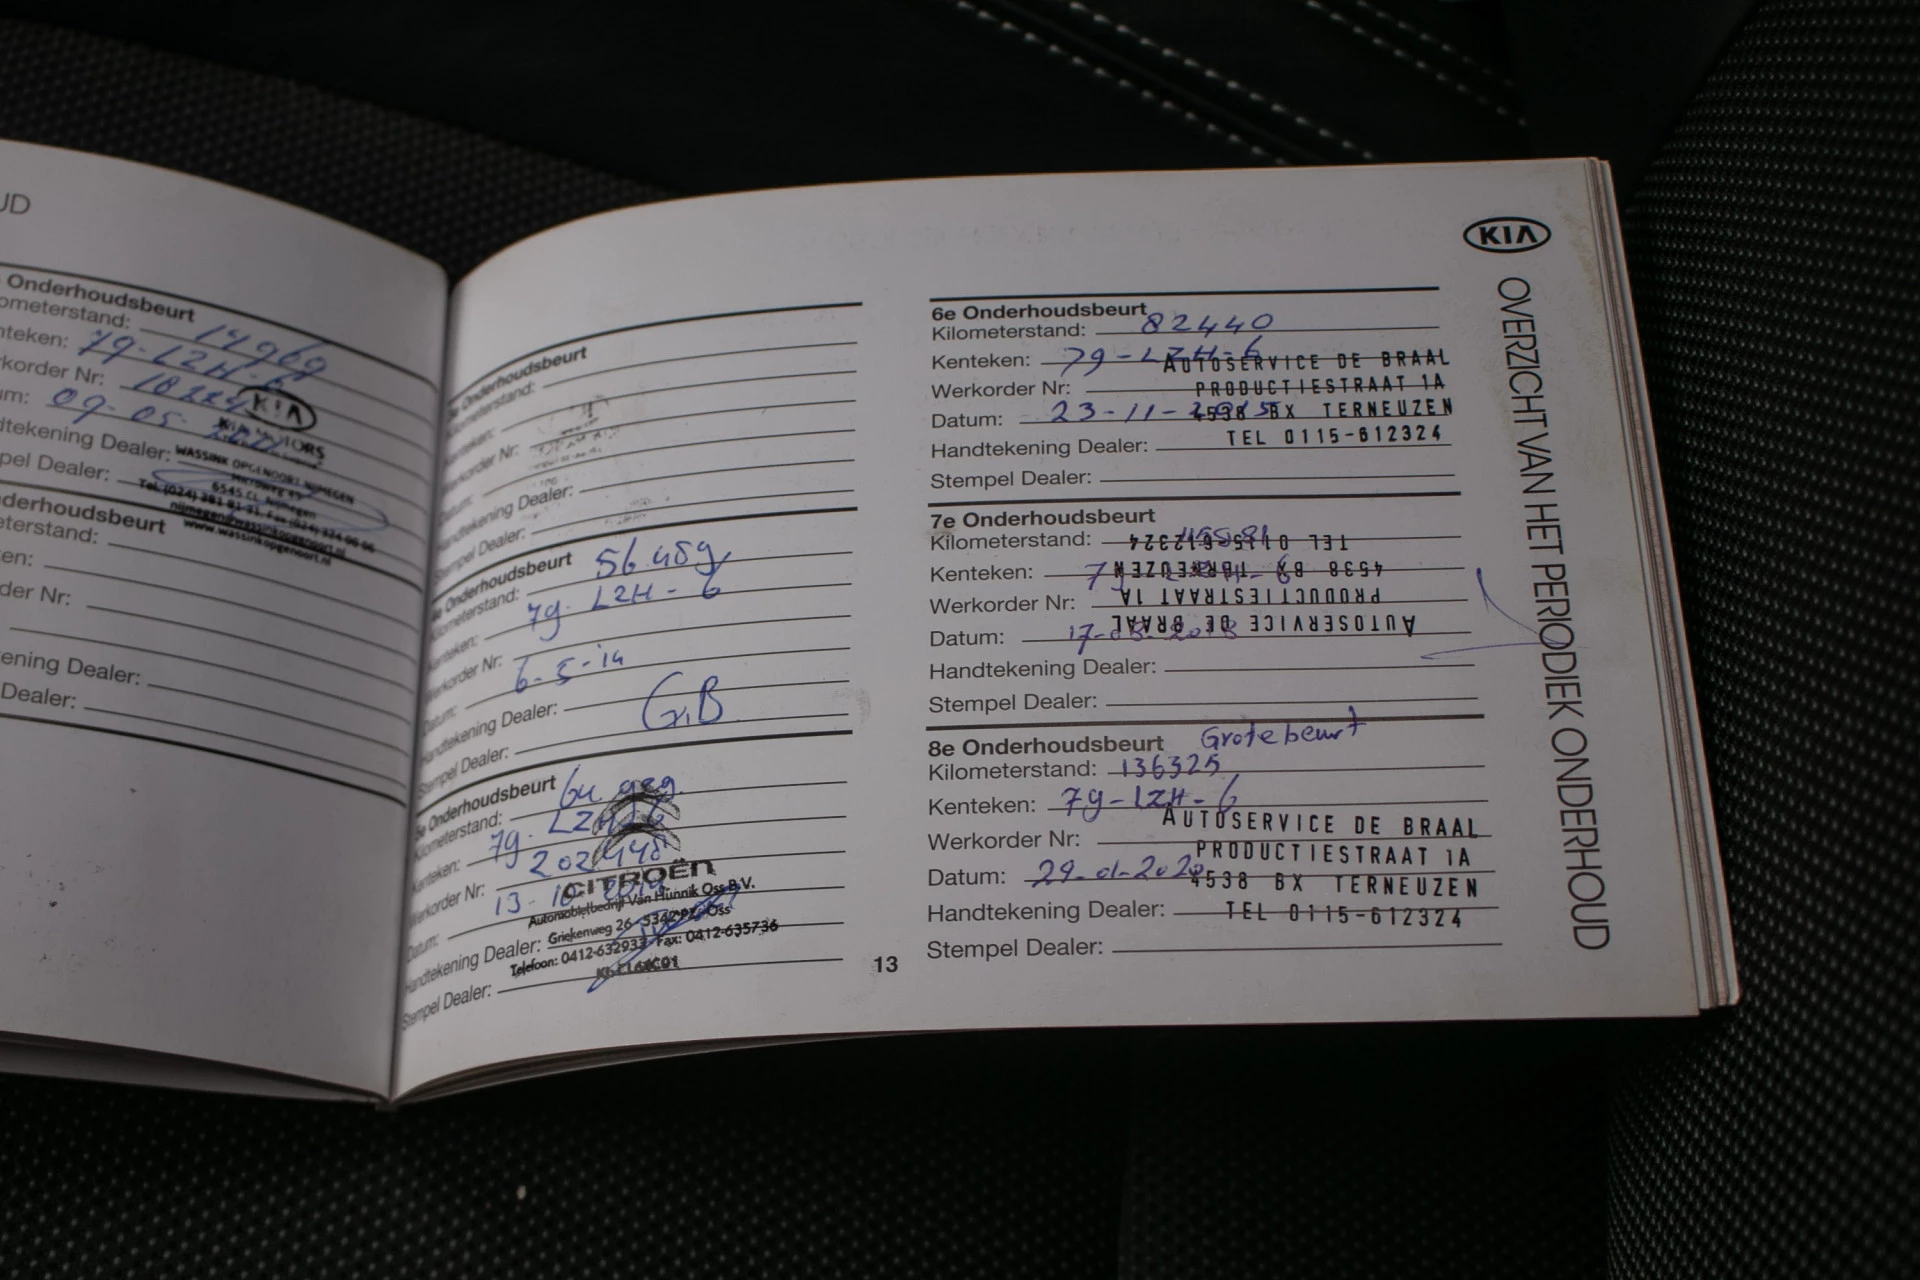 UD
Onderhoudsbeurt
ometerstand: 14969
nteken: 79-LZH-6
rkorder Nr:
um: 09-05-
KIA
KIA MOTORS
dtekening Dealer:
WASSINK OPGENOORT NIJMEGEN
pel Dealer:
6545 CL Nijmegen
Tel. (024) 381 81 31. Fax (024) 324 06 96
nijmegen@wassinkopgenoort.nl
www.wassinkopgenoort.nl
derhoudsbeurt
eterstand:
en:
der Nr:
ening Dealer:
Dealer:
Onderhoudsbeurt
Kilometerstand:
Kenteken:
Werkorder Nr:
Datum:
Handtekening Dealer:
Stempel Dealer:
Onderhoudsbeurt
Kilometerstand: 56.459
Kenteken: 79-LZH-6
Werkorder Nr:
Datum: 6-5-'14
Handtekening Dealer:
Stempel Dealer: G.B
5e Onderhoudsbeurt
Kilometerstand:
Kenteken: 79-LZH-6
Werkorder Nr: 202448
Datum: 13-10-2014
CITROËN
Automobielbedrijf Van Hunnik Oss B.V.
Handtekening Dealer:
Griekenweg 26 - 5342 PZ Oss
Telefoon: 0412-632933 - Fax: 0412-635736
Stempel Dealer:
13
6e Onderhoudsbeurt
Kilometerstand: 82440
Kenteken: 79-LZH-6
AUTOSERVICE DE BRAAL
Werkorder Nr:
PRODUCTIESTRAAT 1A
Datum: 23-11-2015
4538 BX TERNEUZEN
Handtekening Dealer:
TEL 0115-612324
Stempel Dealer:
7e Onderhoudsbeurt
Kilometerstand:
TEL 0115-612324
Kenteken: 79-LZH-6
4538 BX TERNEUZEN
Werkorder Nr:
PRODUCTIESTRAAT 1A
Datum: 17-08-2018
AUTOSERVICE DE BRAAL
Handtekening Dealer:
Stempel Dealer:
8e Onderhoudsbeurt Grote beurt
Kilometerstand: 136325
Kenteken: 79-LZH-6
AUTOSERVICE DE BRAAL
Werkorder Nr:
PRODUCTIESTRAAT 1A
Datum: 29-01-2020
4538 BX TERNEUZEN
Handtekening Dealer:
TEL 0115-612324
Stempel Dealer:
KIA
OVERZICHT VAN HET PERIODIEK ONDERHOUD